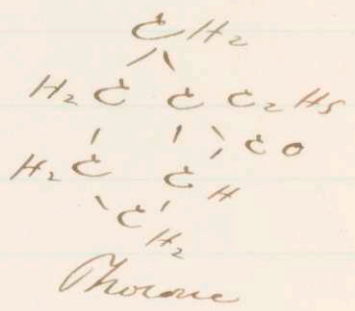 CH2
H2C C C2H5
CO
H2C CH
CH2
Phorone